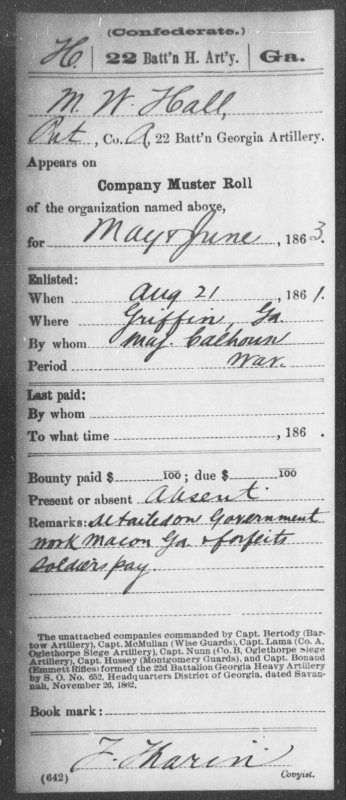 (Confederate.)
H. | 22 Batt'n H. Art'y. | Ga.
M. W. Hall,
Pvt, Co. A, 22 Batt'n Georgia Artillery.
Appears on
Company Muster Roll
of the organization named above,
for May & June, 1863.
Enlisted:
When Aug 21, 1861.
Where Griffin, Ga
By whom Maj. Calhoun
Period War.
Last paid:
By whom
To what time , 186 .
Bounty paid $ 100; due $ 100
Present or absent Absent
Remarks: detailed on Government
work Macon Ga & forfeits
soldiers pay.
The unattached companies commanded by Capt. Bertody (Bar-
tow Artillery), Capt. McMullan (Wise Guards), Capt. Lama (Co. A,
Oglethorpe Siege Artillery), Capt. Nunn (Co. B, Oglethorpe Siege
Artillery), Capt. Hussey (Montgomery Guards), and Capt. Bonaud
(Emmett Rifles) formed the 22d Battalion Georgia Heavy Artillery
by S. O. No. 652, Headquarters District of Georgia, dated Savan-
nah, November 26, 1862.
Book mark:
(642) Copyist.